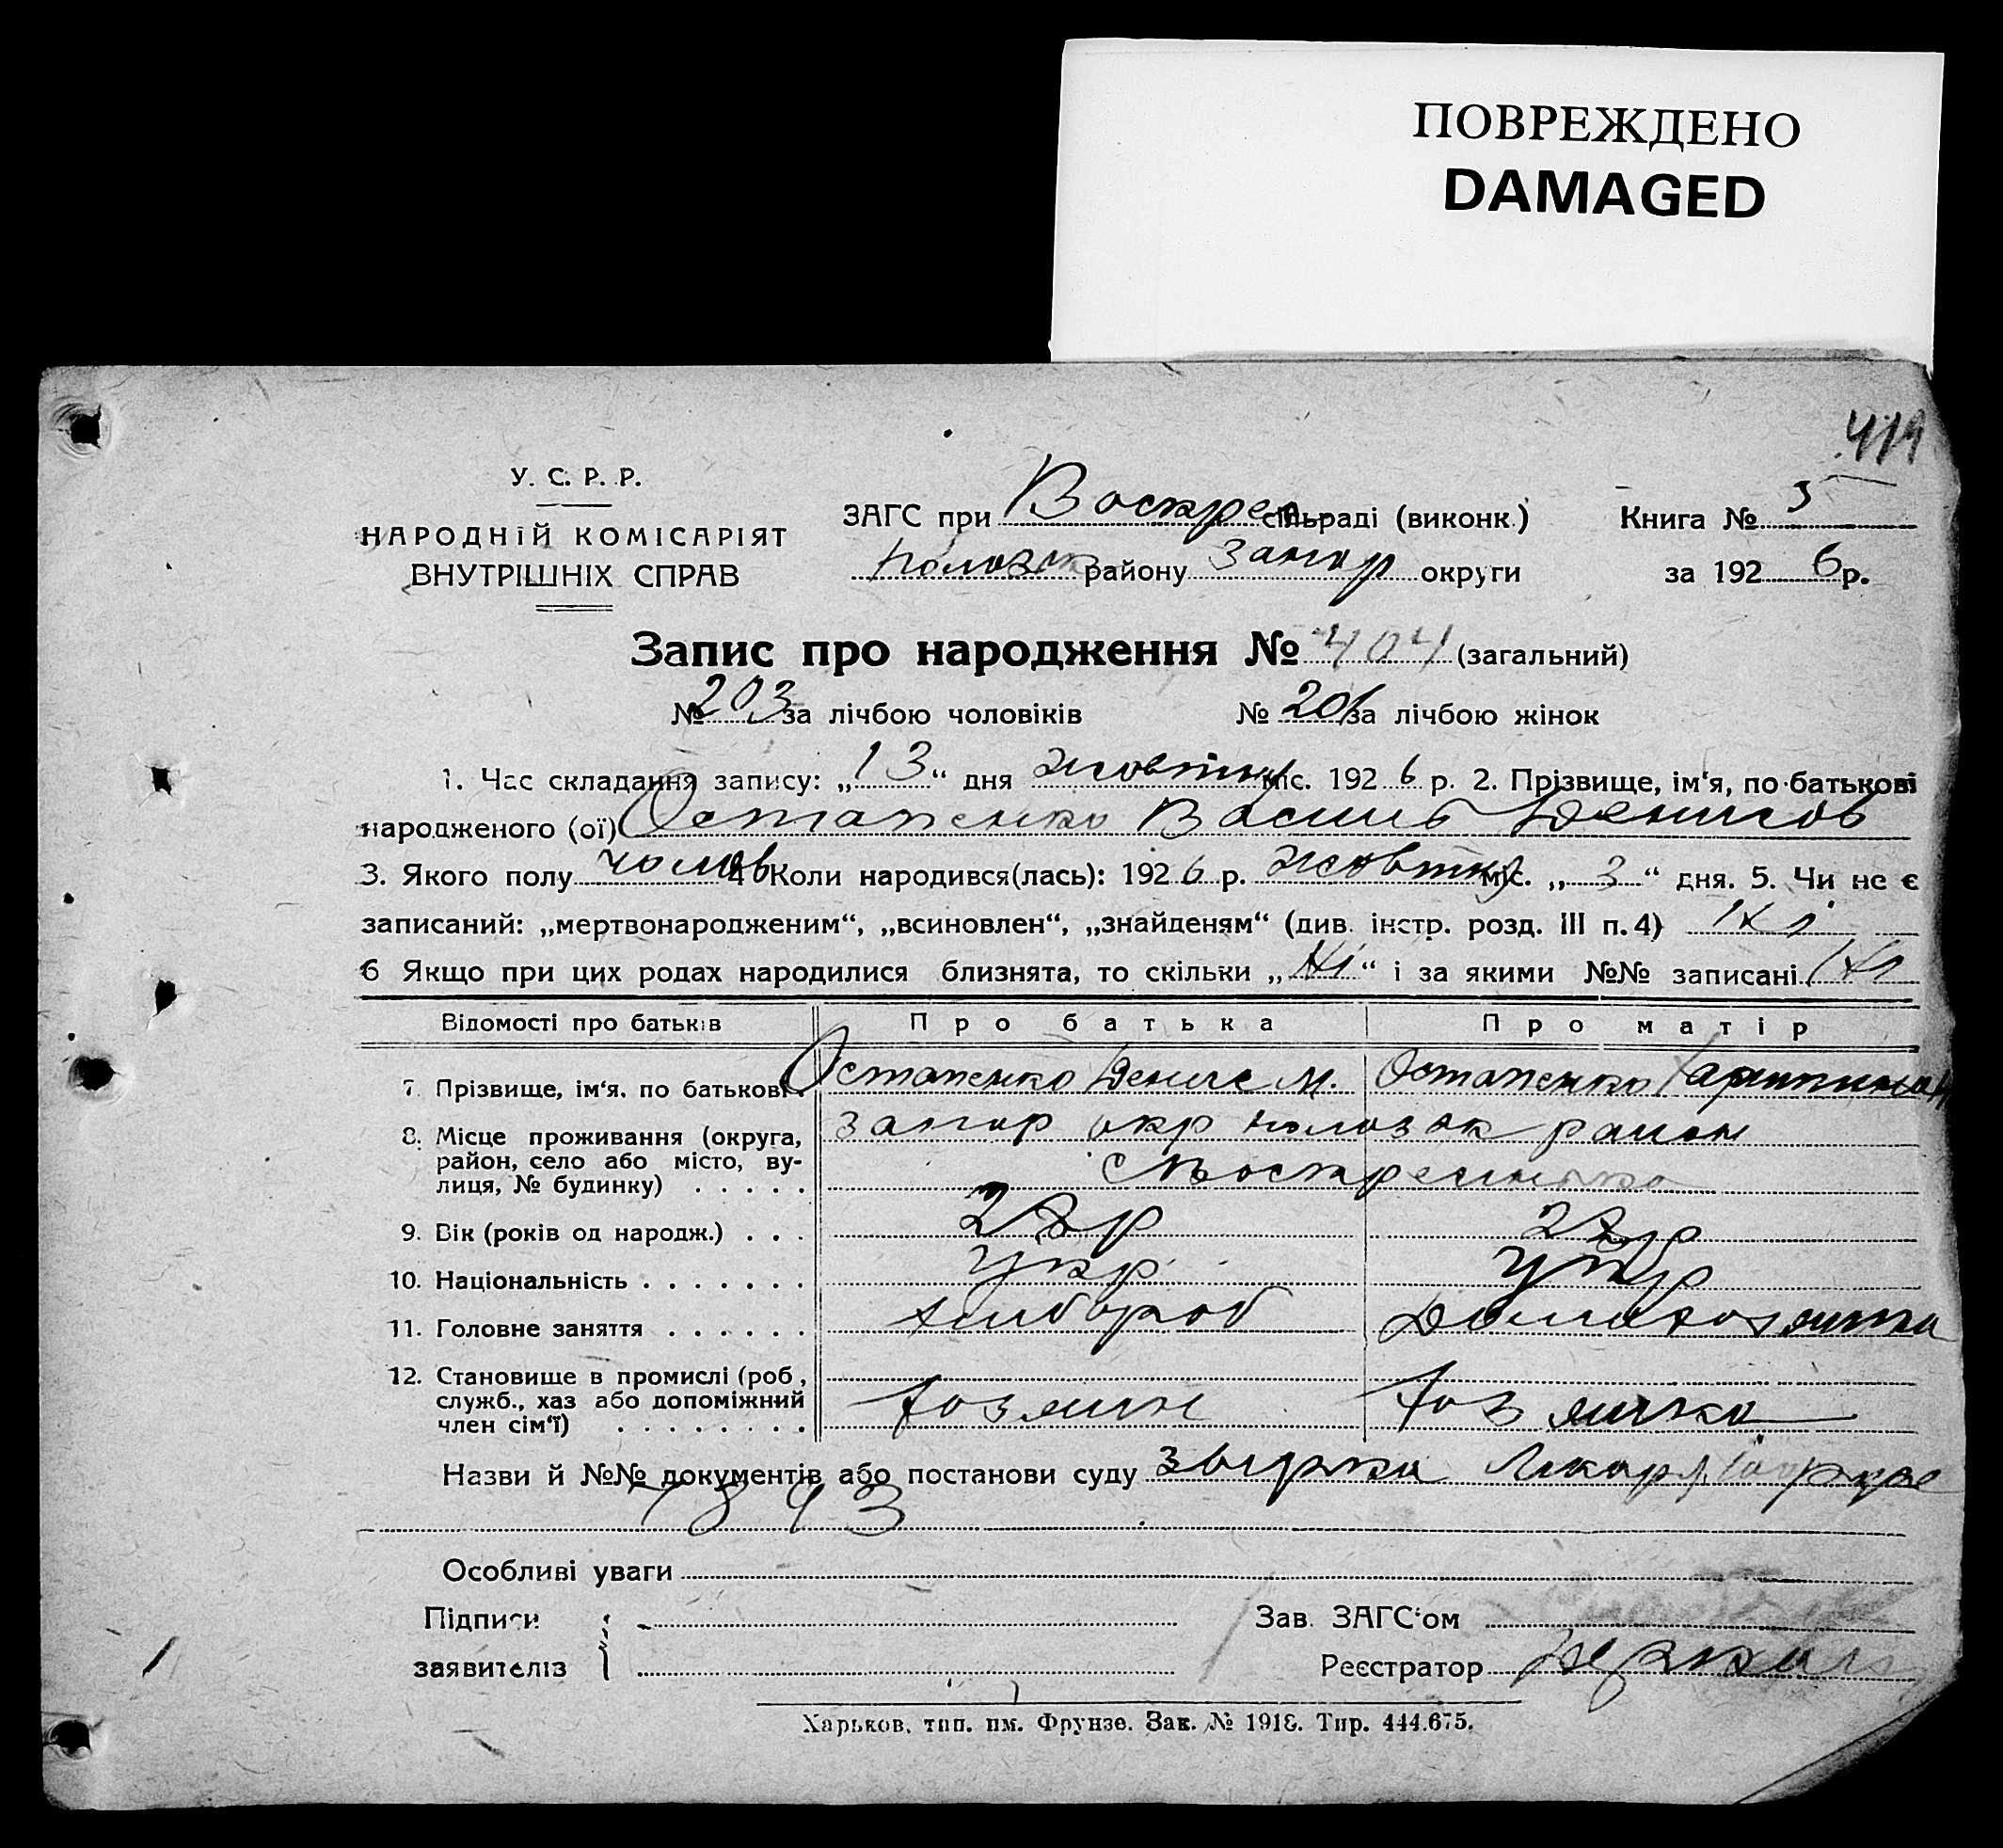 ПОВРЕЖДЕНО
DAMAGED
419
У. С. Р. Р.
НАРОДНІЙ КОМІСАРІЯТ
ВНУТРІШНІХ СПРАВ
ЗАГС при Воскрес сільраді (виконк.)
Полозьк району Запор округи
Книга № 3
за 1926 р.
Запис про народження № 404 (загальний)
№ 203 за лічбою чоловіків № 201 за лічбою жінок
1. Час складання запису: „13“ дня жовтня міс. 1926 р. 2. Прізвище, ім‘я, по батькові
народженого (ої) Остапенко Василь Денисов
3. Якого полу чолов 4 Коли народився(лась): 1926 р. жовтня міс. „3“ дня. 5. Чи не є
записаний: „мертвонародженим“, „всиновлен“, „знайденям“ (див. інстр. розд. III п. 4) Ні
6 Якщо при цих родах народилися близнята, то скільки „Ні“ і за якими №№ записані Ні
Відомості про батьків Про батька Про матір
7. Прізвище, ім‘я, по батькові. Остапенко Денис М. Остапенко
8. Місце проживання (округа, Запор окр Полозьк район
район, село або місто, ву-
лиця, № будинку) . . . . . с Воскресинька
9. Вік (років од народж.) . . . 27 р 27 р
10. Національність . . . . . . . Укр Укр
11. Головне заняття . . . . . . хлібороб Домохозяйка
12. Становище в промислі (роб.,
служб., хаз або допоміжний хозяин хозяйка
член сім‘ї) . . . . . . . .
Назви й №№ документів або постанови суду
Особливі уваги
Підписи
заявителів
Зав. ЗАГС‘ом
Реєстратор
Харьков, тип. им. Фрунзе. Зак. № 1918. Тир. 444.675.